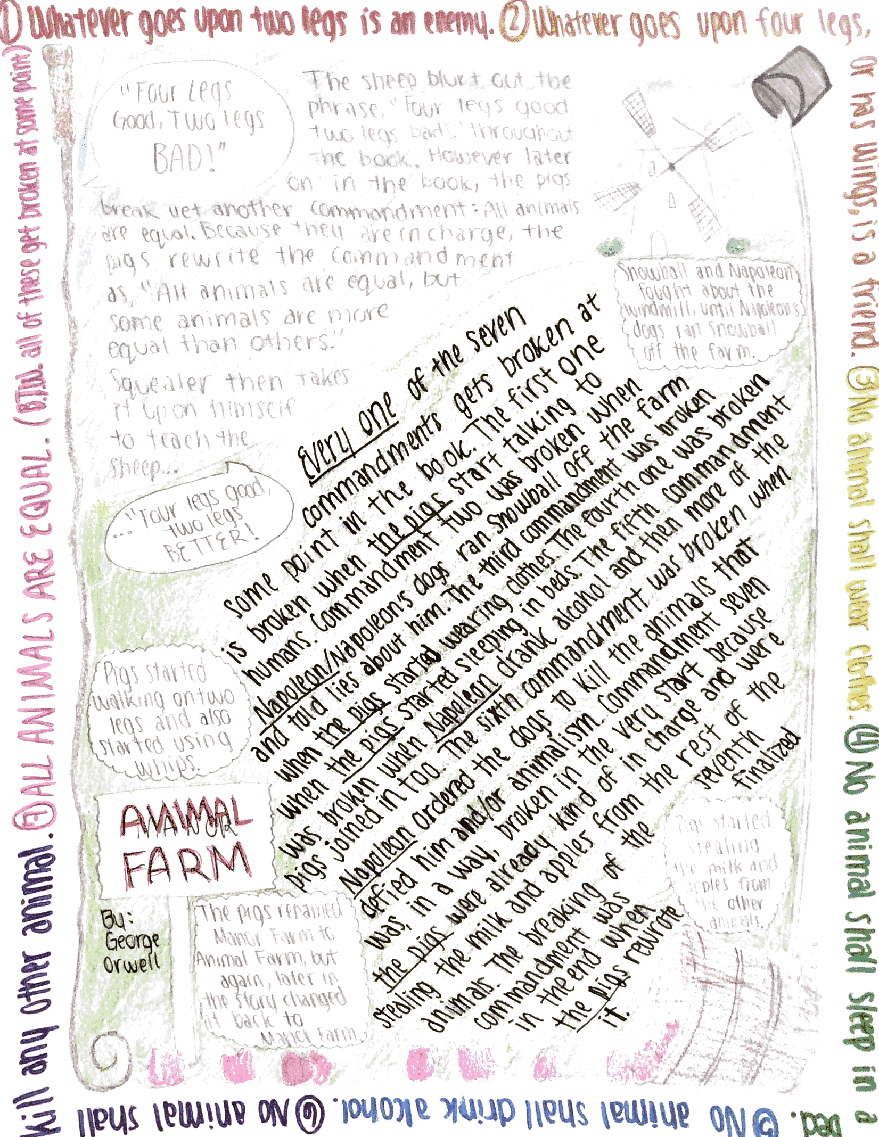 ① Whatever goes upon two legs is an enemy. ② Whatever goes upon four legs,
or has wings, is a friend. ③ No animal shall wear clothes. ④ No animal shall sleep in a
bed. ⑤ No animal shall drink alcohol. ⑥ No animal shall
kill any other animal. ⑦ ALL ANIMALS ARE EQUAL. (B.T.W. all of these get broken at some point)
"Four Legs
Good, Two legs
BAD!"
The sheep blurt out the
phrase, "Four legs good
two legs bad," throughout
the book. However later
on in the book, the pigs
break yet another commandment: All animals
are equal. Because they are in charge, the
pigs rewrite the commandment
as, "All animals are equal, but
some animals are more
equal than others."
Squealer then takes
it upon himself
to teach the
sheep...
..."Four legs good,
two legs
BETTER!
Snowball and Napoleon
fought about the
windmill, until Napoleon's
dogs ran Snowball
off the farm.
Every one of the seven
commandments gets broken at
some point in the book. The first one
is broken when the pigs start talking to
humans. Commandment two was broken when
Napoleon/Napoleon's dogs ran Snowball off the farm
and told lies about him. The third commandment was broken
when the pigs started wearing clothes. The fourth one was broken
when the pigs started sleeping in beds. The fifth commandment
was broken when Napoleon drank alcohol and then more of the
pigs joined in too. The sixth commandment was broken when
Napoleon ordered the dogs to kill the animals that
defied him and/or animalism. Commandment seven
was, in a way, broken in the very start because
the pigs were already kind of in charge and were
stealing the milk and apples from the rest of the
animals. The breaking of the seventh
commandment was finalized
in the end when
the pigs rewrote
it.
Pigs started
walking on two
legs and also
started using
whips.
ANIMAL
MANOR
FARM
By:
George
Orwell
The pigs renamed
Manor Farm to
Animal Farm, but
again, later in
the story changed
it back to
Manor Farm.
Pigs started
stealing
the milk and
apples from
the other
animals.